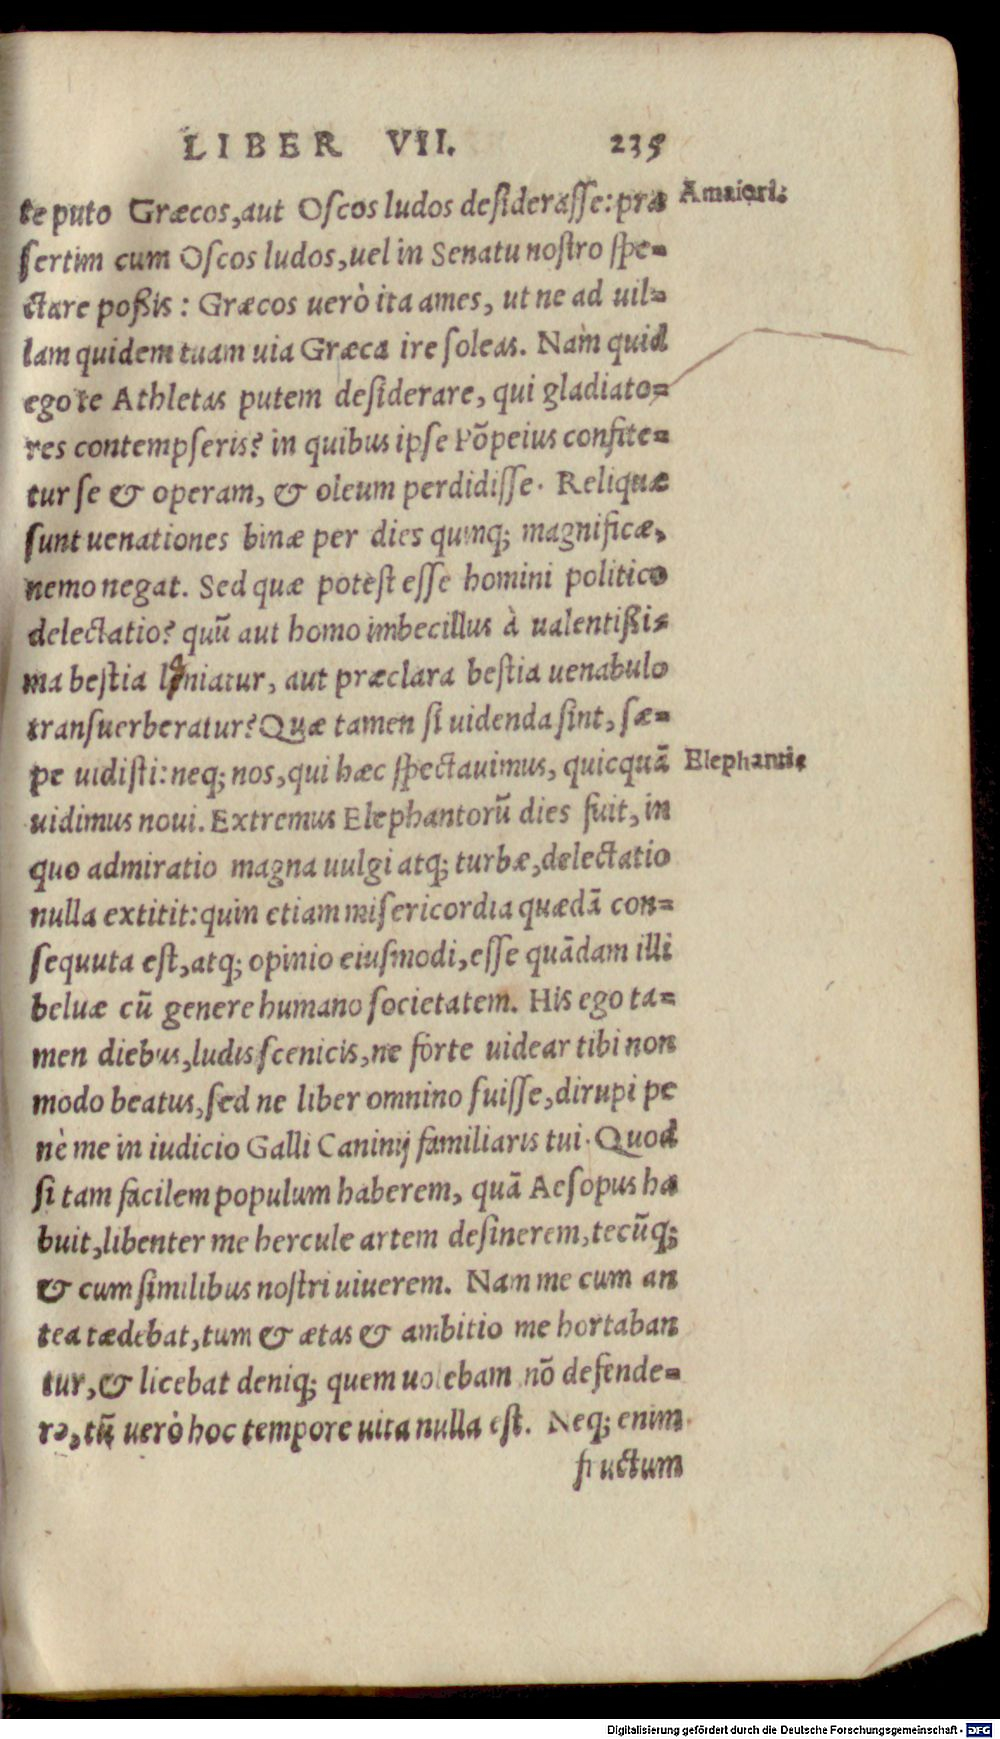 LIBER VII. 235
te puto Græcos, aut Oſcos ludos deſideraſſe: præ
A maiori.
ſertim cum Oſcos ludos, uel in Senatu noſtro ſpe-
ctare poßis: Græcos uerò ita ames, ut ne ad uil-
lam quidem tuam uia Græca ire ſoleas. Nam quid
ego te Athletas putem deſiderare, qui gladiato-
res contempſeris? in quibus ipſe Põpeius confite-
tur ſe & operam, & oleum perdidiſſe. Reliquæ
ſunt uenationes binæ per dies quinq; magnificæ,
nemo negat. Sed quæ poteſt eſſe homini politico
delectatio? quũ aut homo imbecillus à ualentißi-
ma beſtia laniatur, aut præclara beſtia uenabulo
tranſuerberatur? Quæ tamen ſi uidenda ſint, ſæ-
pe uidiſti: neq; nos, qui hæc ſpectauimus, quicquã
Elephantis
uidimus noui. Extremus Elephantorũ dies fuit, in
quo admiratio magna uulgi atq; turbæ, delectatio
nulla extitit: quin etiam miſericordia quædã con-
ſequuta eſt, atq; opinio eiuſmodi, eſſe quãdam illi
beluæ cũ genere humano ſocietatem. His ego ta-
men diebus, ludis ſcenicis, ne forte uidear tibi non
modo beatus, ſed ne liber omnino fuiſſe, dirupi pe
nè me in iudicio Galli Caninij familiaris tui. Quod
ſi tam facilem populum haberem, quã Aeſopus ha
buit, libenter me hercule artem deſinerem, tecũq;
& cum ſimilibus noſtri uiuerem. Nam me cum an
tea tædebat, tum & ætas & ambitio me hortaban
tur, & licebat deniq; quem uolebam nõ defende-
re, tũ uerò hoc tempore uita nulla eſt. Neq; enim
fructum
Digitalisierung gefördert durch die Deutsche Forschungsgemeinschaft - DFG